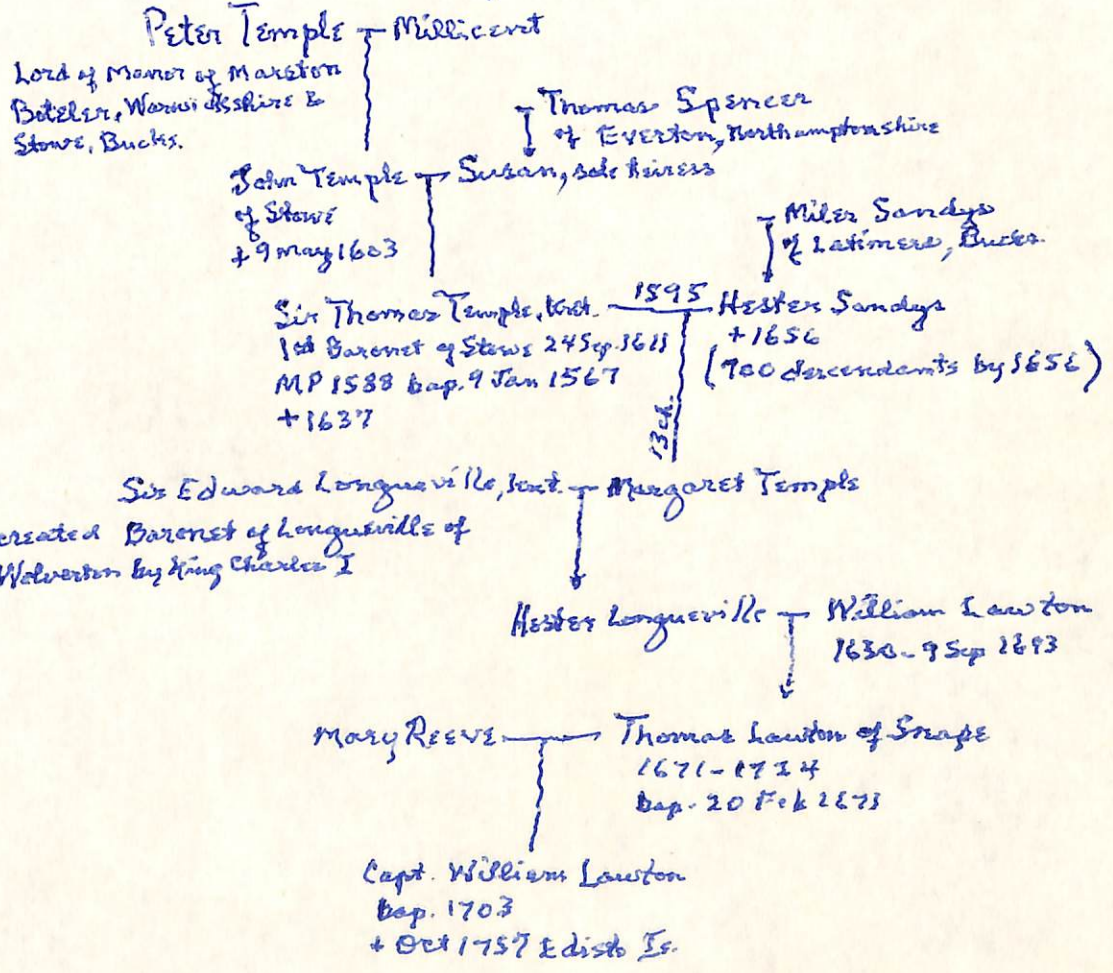 Peter Temple Millicent
Lord of Manor of Marston
Boteler, Warwickshire &
Stowe, Bucks.
Thomas Spencer
of Everton, Northamptonshire
John Temple Susan, sole heiress
of Stowe
+ 9 May 1603
Miles Sandys
of Latimers, Bucks.
Sir Thomas Temple, knt. 1595 Hester Sandys
1st Baronet of Stowe 24 Sep. 1611 + 1656
MP 1588 bap. 9 Jan 1567 (700 descendants by 1656)
+ 1637
13 ch.
Sir Edward Longueville, knt. Margaret Temple
created Baronet of Longueville of
Wolverton by King Charles I
Hester Longueville William Lawton
1630 - 9 Sep 1693
Mary Reeve Thomas Lawton of Snape
1671-1724
bap. 20 Feb
Capt. William Lawton
bap. 1703
+ Oct 1757 Edisto Is.